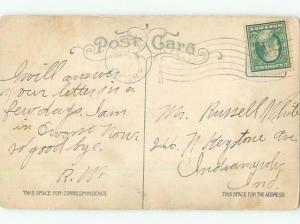 Post Card
I will answer
your letter in a
few days. I am
in Owosso now.
so good bye.
R. W.
Mr. Russell White
N Keystone Ave
Indianapolis
Ind.
THIS SPACE FOR CORRESPONDENCE
THIS SPACE FOR THE ADDRESS